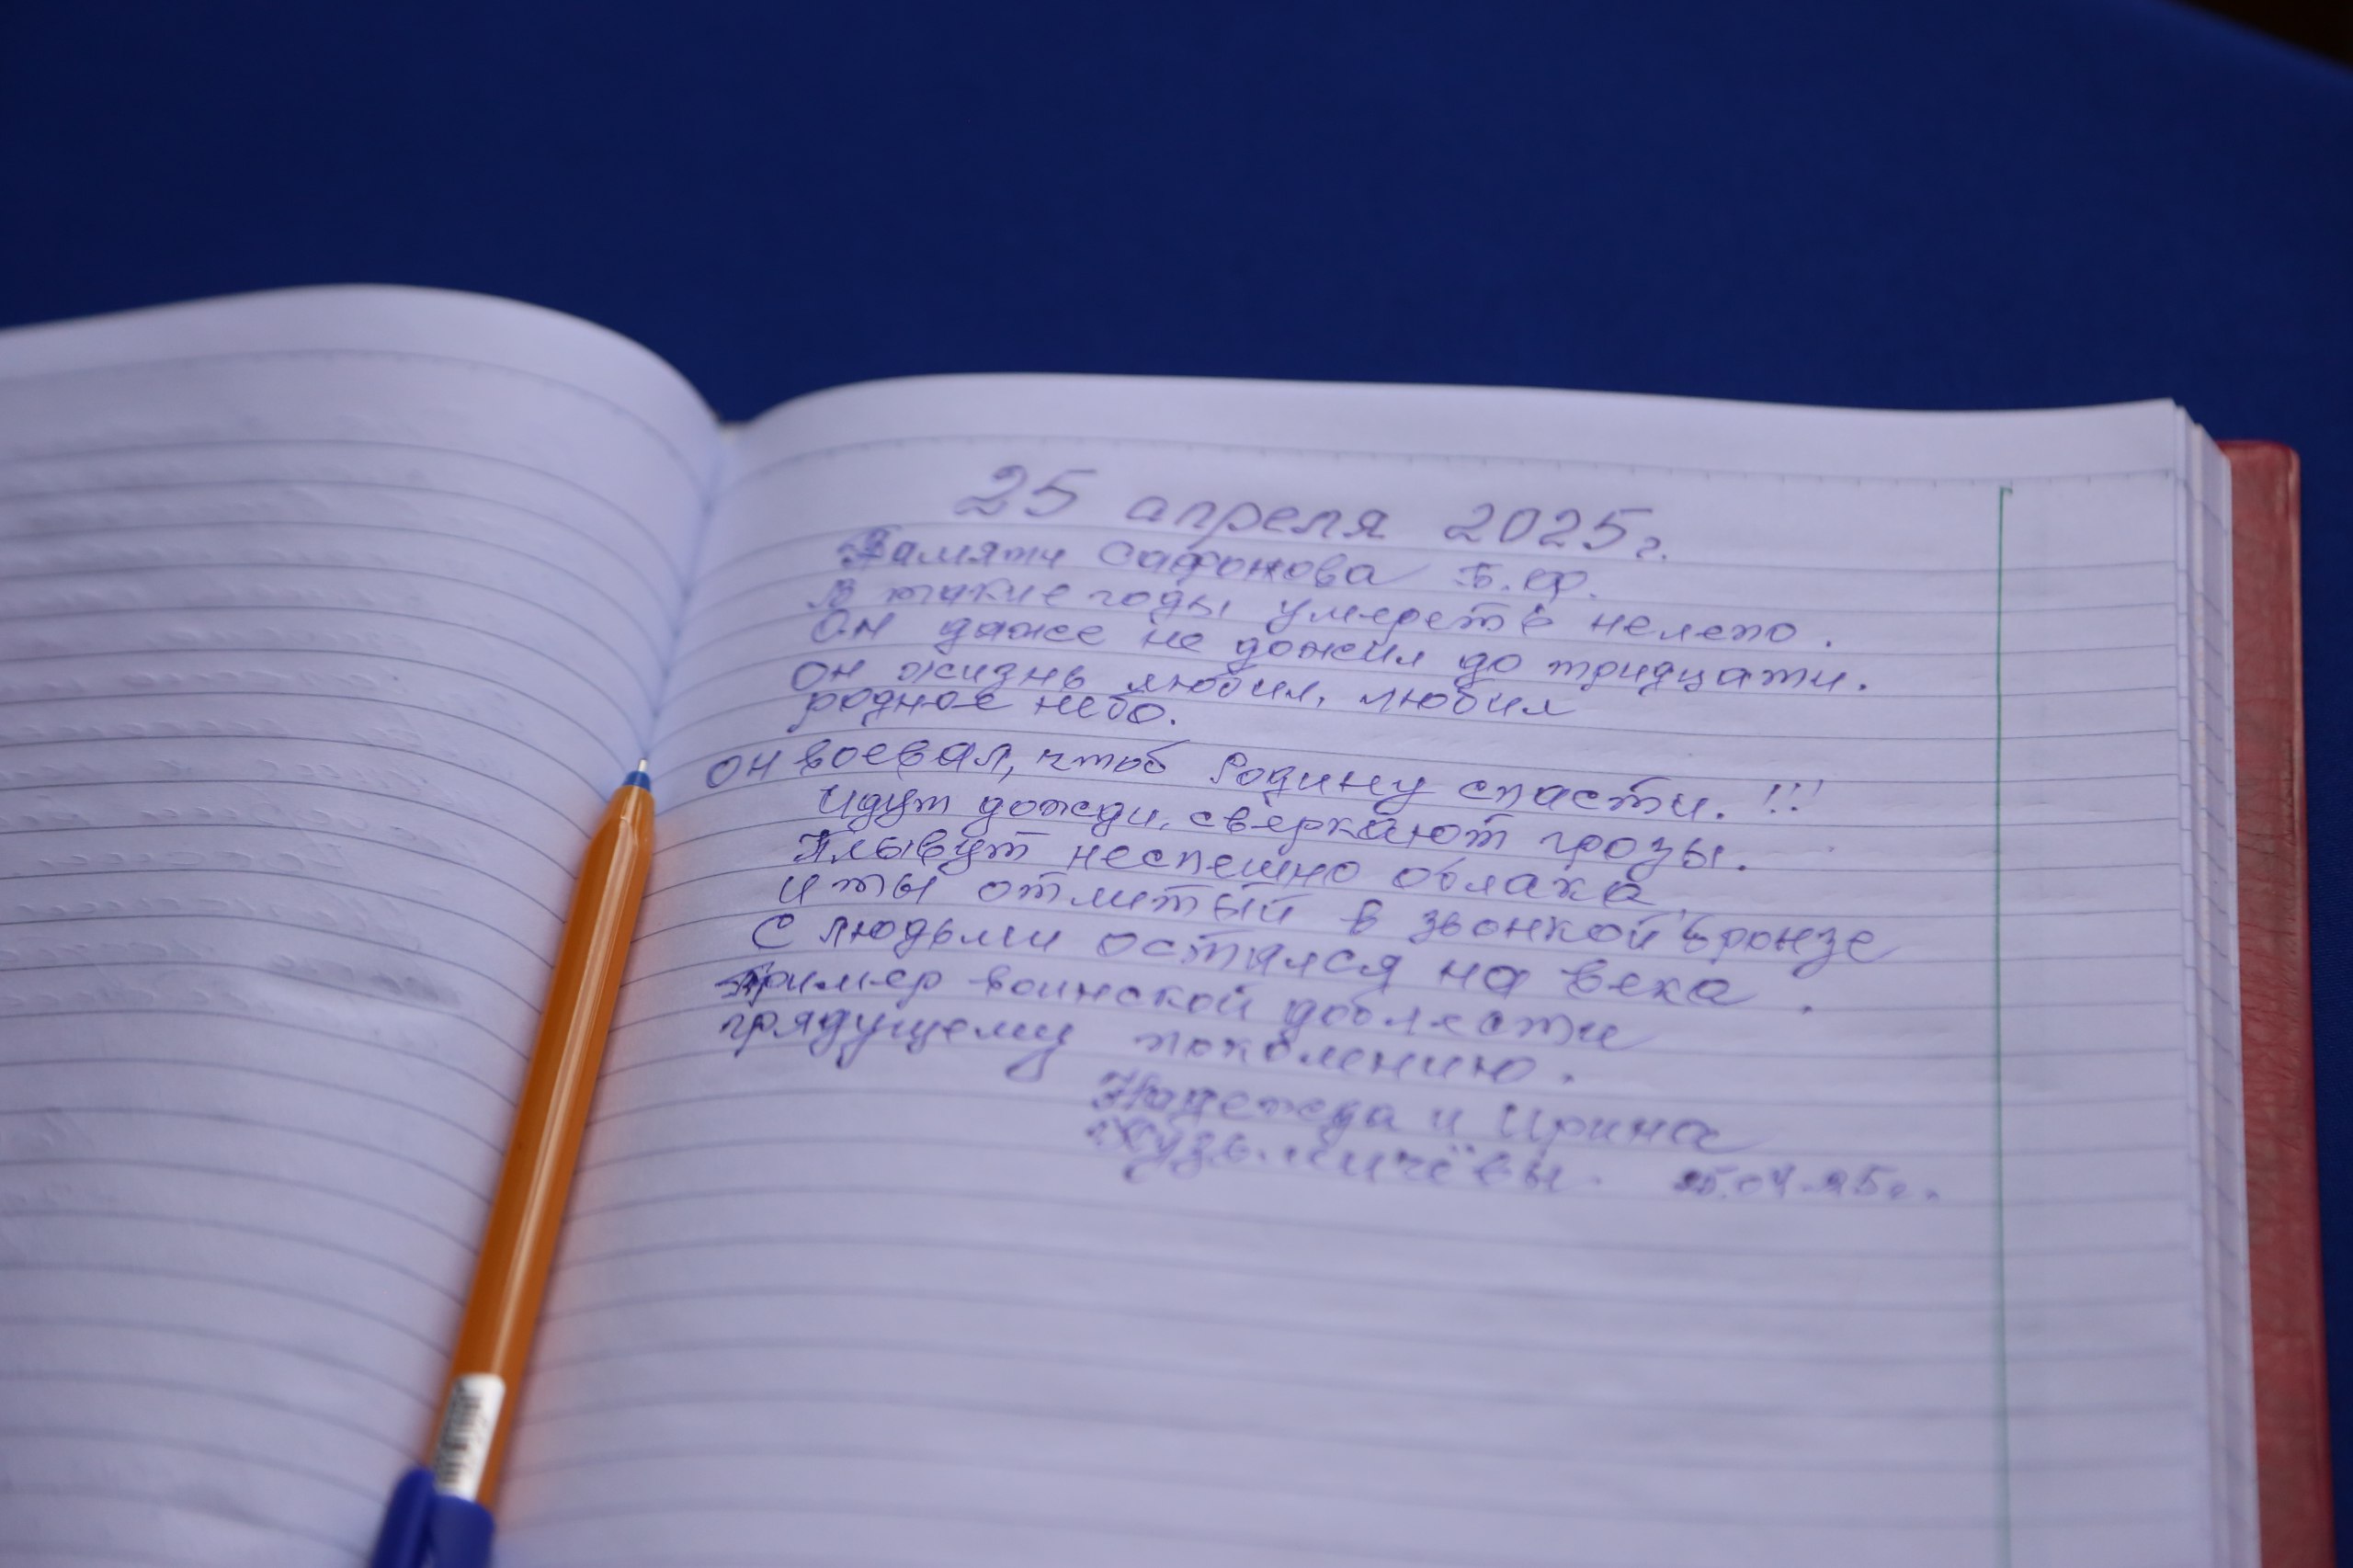 25 апреля 2025г.
Памяти Сафонова Б.Ф.
В такие годы умереть нелепо.
Он даже не дожил до тридцати.
Он жизнь любил, любил
родное небо.
Он воевал, чтоб Родину спасти. !!!
Идут дожди, сверкают грозы.
Плывут неспешно облака
И ты отлитый в звонкой бронзе
С людьми остался на века.
Пример воинской доблести
грядущему поколению.
Надежда и Ирина
Кузьмичёвы. 25.04.25г.